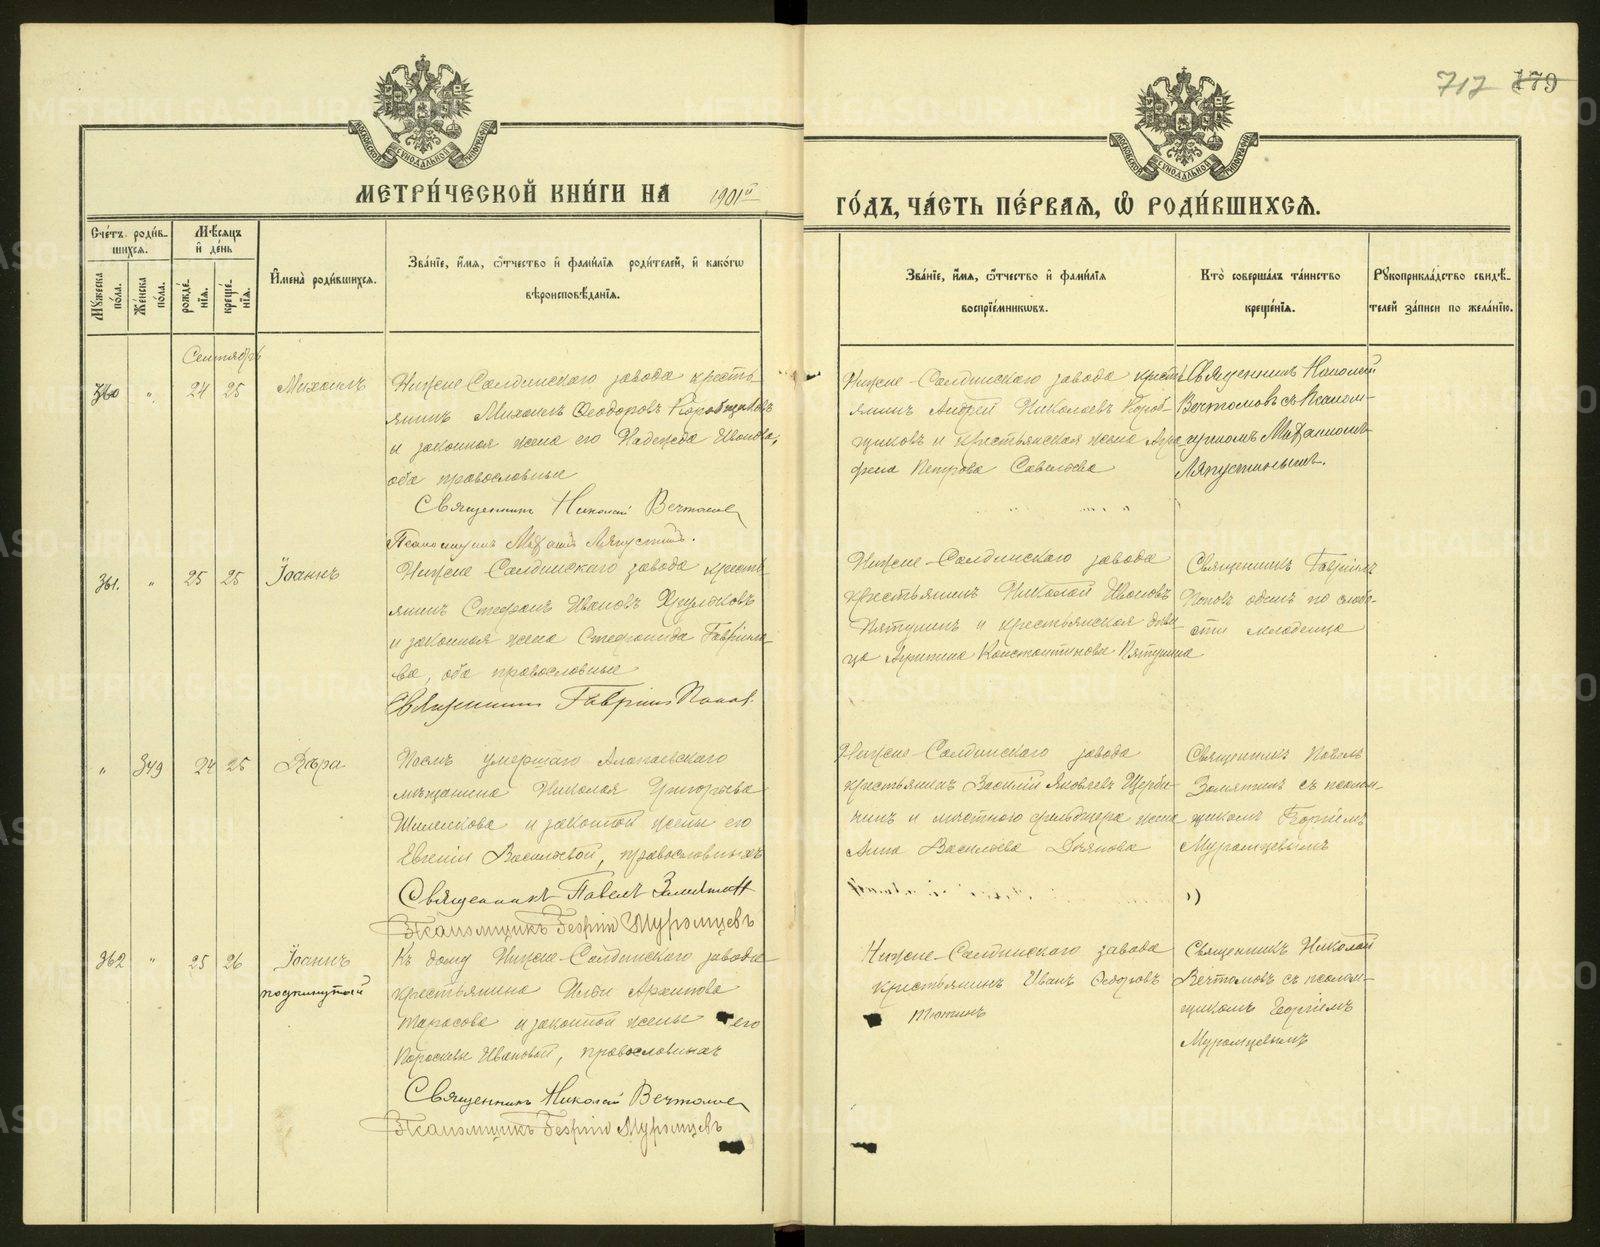 717 179
МЕТРИ́ЧЕСКОЙ КНИ́ГИ НА 1901й ГО́ДЪ, ЧА́СТЬ ПЕ́РВАЯ, Ѡ РОДИ́ВШИХСЯ.
Сче́тъ роди́в-
шихся.
Мꙋ́жеска по́ла.
Же́нска по́ла.
Мѣ́сяцъ
и҆ де́нь
рожде́-
нія.
креще́-
нія.
И҆мена̀ роди́вшихся.
Зва́ніе, и҆́мя, ѻ҆́тчество и҆ фами́лія роди́телей, и҆ како́гѡ
вѣроисповѣ́данія.
Зва́ніе, и҆́мя, ѻ҆́тчество и҆ фами́лія
воспріе́мниковъ.
Кто̀ соверша́лъ та́инство
креще́нія.
Рꙋкоприкла́дство свидѣ́-
телей за́писи по жела́нію.
Сентября
360 " 24 25 Михаилъ
Нижне-Салдинскаго завода кресть-
янинъ Михаилъ Ѳеодоровъ Коробщиковъ
и законная жена его Надежда Иванова,
оба православные
Священникъ Николай Вечтомов
Псаломщикъ Меѳодій Ляпустинъ.
Нижне-Салдинскаго завода кресть-
янинъ Андрей Николаевъ Короб-
щиковъ и крестьянская жена Агра-
фена Петрова Савельева
Священникъ Николай
Вечтомовъ съ псалом-
щикомъ Меѳодіемъ
Ляпустинымъ.
361. " 25 25 Іоаннъ
Нижне Салдинскаго завода кресть-
янинъ Стефанъ Ивановъ
и законная жена Стефанида Гавріило-
ва, оба православные
Священникъ Гавріилъ Попов.
Нижне-Салдинскаго завода
крестьянинъ Николай Ивановъ
Пятунинъ и крестьянская дѣви-
ца Константинова Пятунина
Священникъ Гавріилъ
Поповъ одинъ по слабо-
сти младенца
" 349 24 25 Вѣра
умершаго Алапаевскаго
мѣщанина Николая Григорьева
и законной жены его
Евгеніи Васильевой, православныхъ
Священникъ Павелъ Замятин
Псаломщикъ Георгій Муромцевъ
Нижне-Салдинскаго завода
крестьянинъ Василій Яковлевъ Щерби-
нинъ и мѣстнаго фельдшера жена
Анна Васильева
Священникъ Павелъ
Замятинъ съ псалом-
щикомъ Георгіемъ
Муромцевымъ
362 " 25 26 Іоаннъ
подкинутый
Къ дому Нижне-Салдинскаго завода
крестьянина Ильи Архипова
Тарасова и законной жены его
Параскевы Ивановой, православныхъ
Священникъ Николай Вечтомов
Псаломщикъ Георгій Муромцевъ
Нижне-Салдинскаго завода
крестьянинъ Иванъ Ѳедоровъ
Тютинъ
Священникъ Николай
Вечтомовъ съ псалом-
щикомъ Георгіемъ
Муромцевымъ